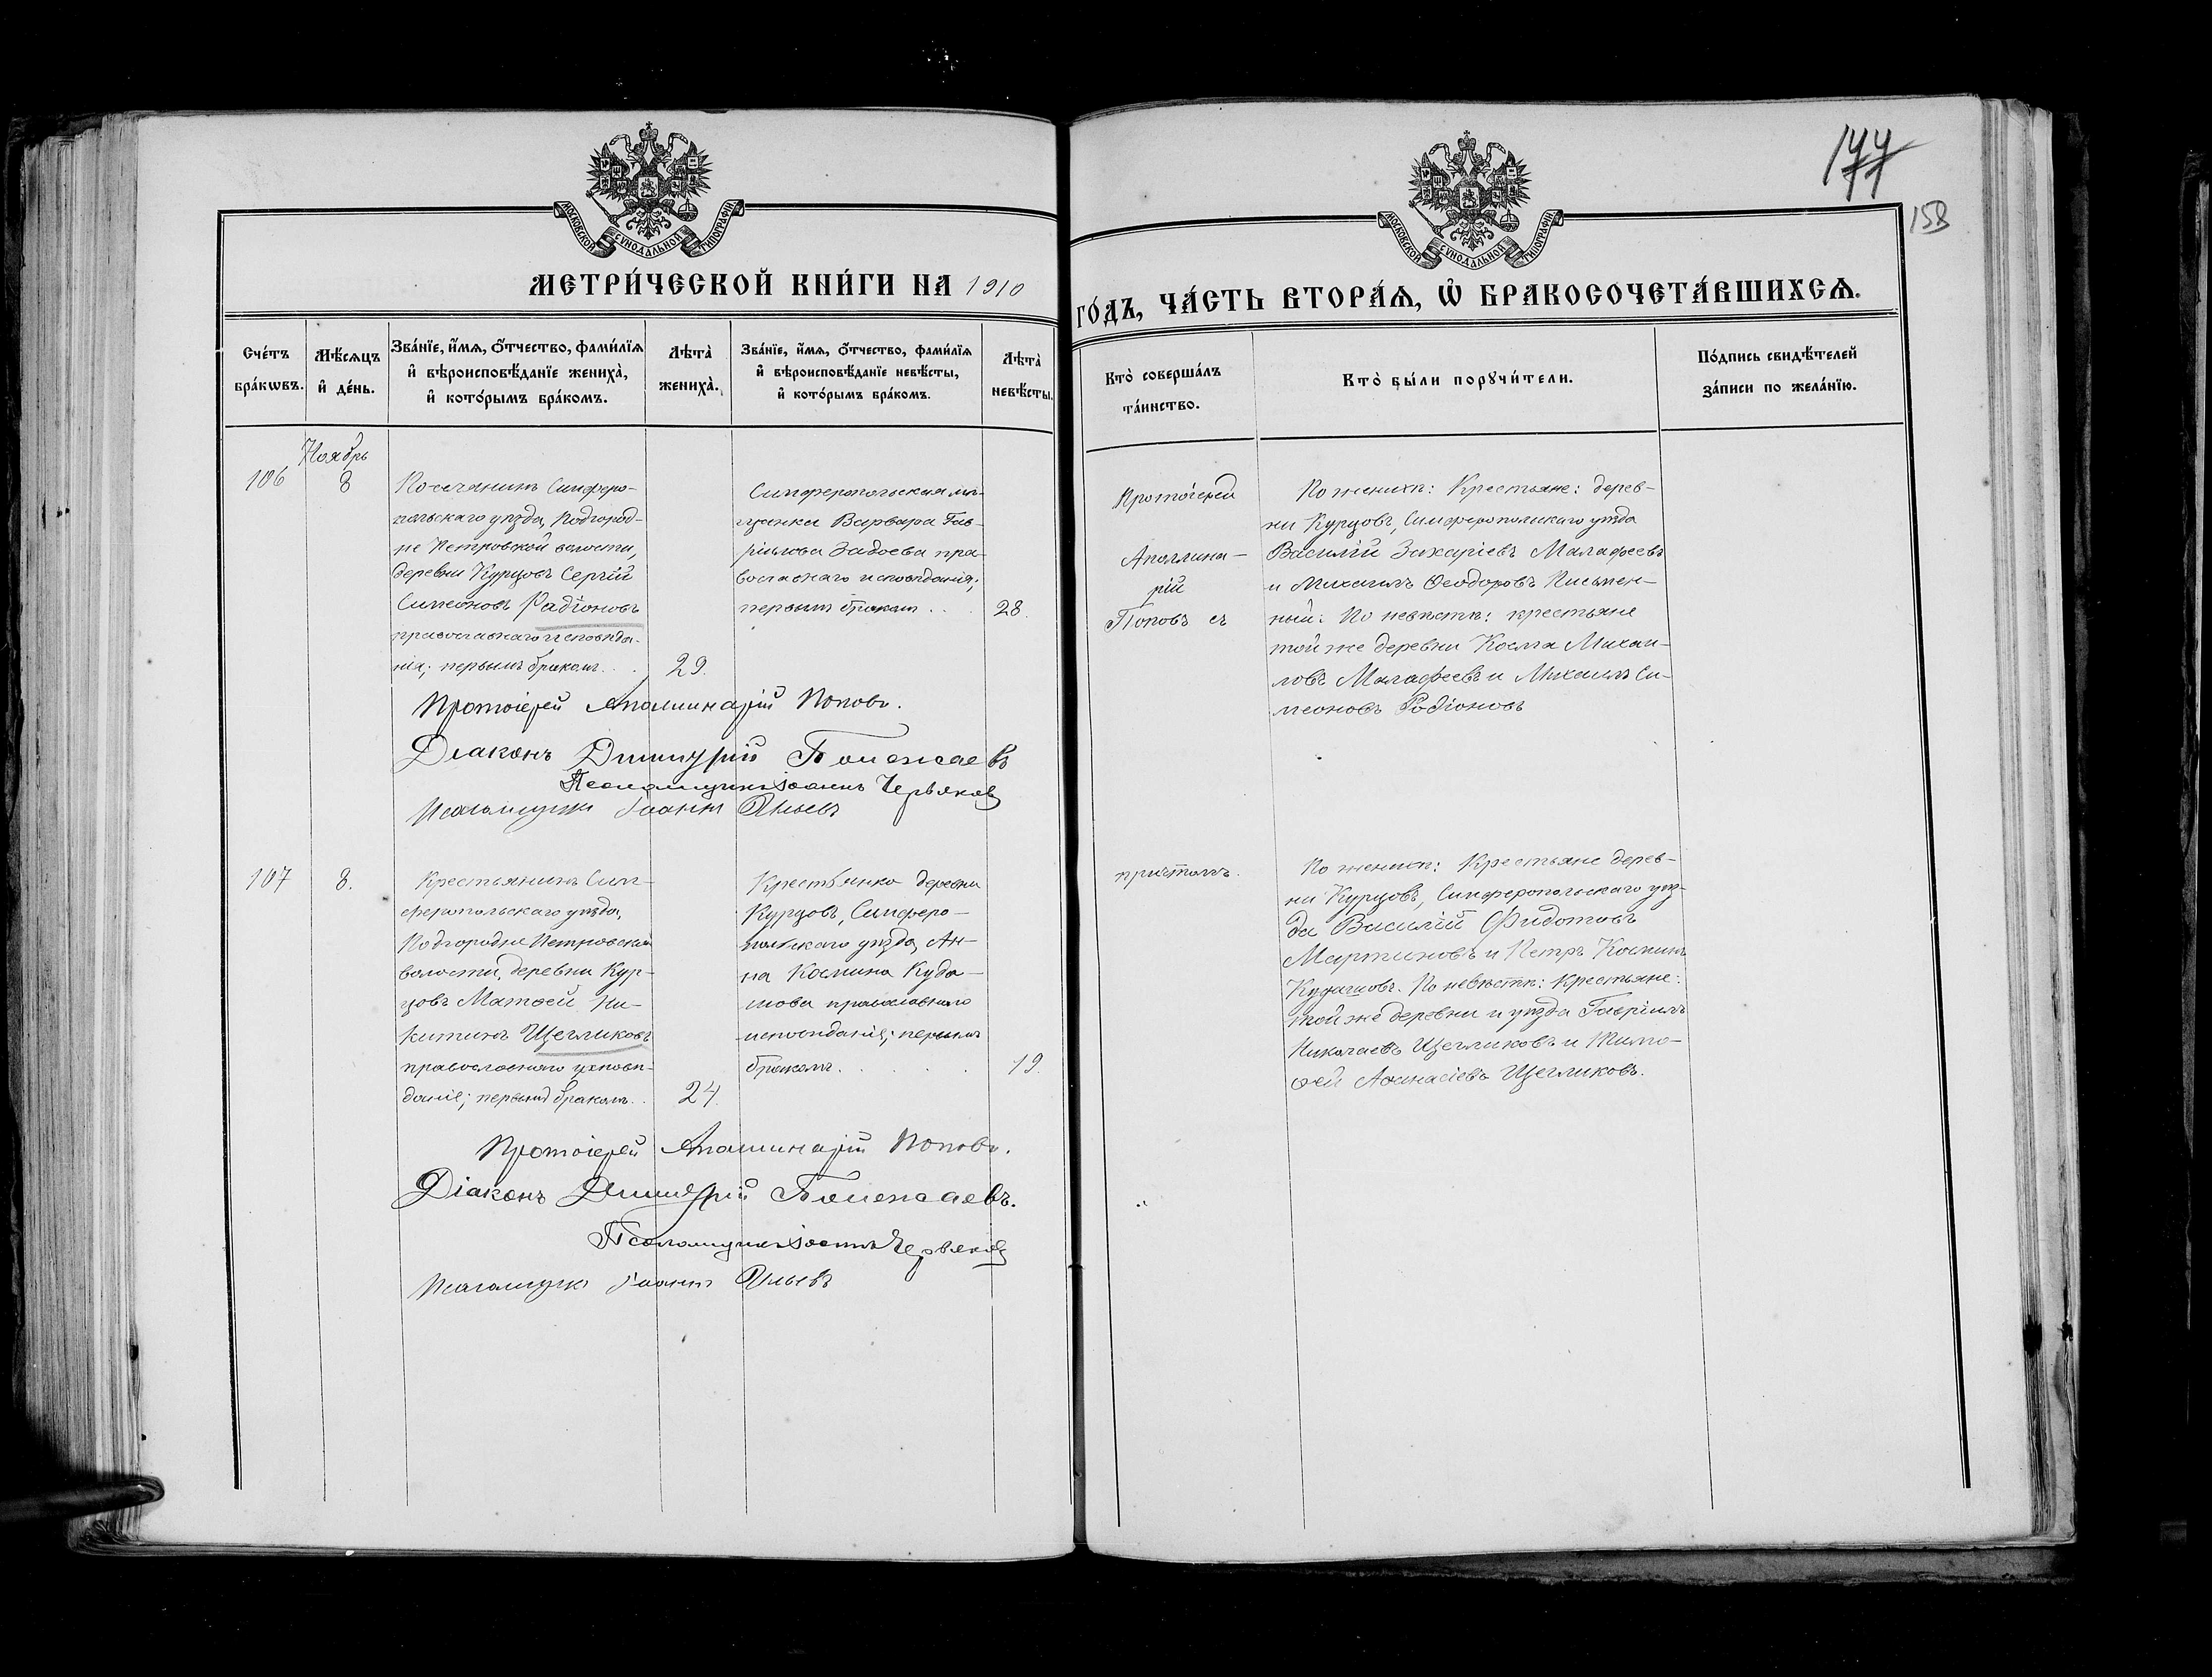 177
158
МОСКОВСКОЙ СѴНОДАЛЬНОЙ ТИПОГРАФІИ
МОСКОВСКОЙ СѴНОДАЛЬНОЙ ТИПОГРАФІИ
МЕТРИ́ЧЕСКОЙ КНИ́ГИ НА 1910
ГО́ДЪ, ЧА́СТЬ ВТОРА́Ѧ, Ѽ БРАКОСОЧЕТА́ВШИХСѦ.
Сче́тъ
бра́кѡвъ.
Мѣ́сѧцъ
и҆ де́нь.
Зва́нїе, и҆́мѧ, ѻ҆́тчество, фами́лїѧ
и҆ вѣроисповѣ́данїе жениха̀,
и҆ кото́рымъ бра́комъ.
Лѣта̀
жениха̀.
Зва́нїе, и҆́мѧ, ѻ҆́тчество, фами́лїѧ
и҆ вѣроисповѣ́данїе невѣ́сты,
и҆ кото́рымъ бра́комъ.
Лѣта̀
невѣ́сты.
Кто̀ соверша́лъ
та́инство.
Кто̀ бы́ли порꙋчи́тели.
По́дпись свидѣ́телей
за́писи по жела́нїю.
Ноябрь
106
8
Поселянинъ Симферо-
польскаго уѣзда, Подгород-
не Петровской волости,
деревни Курцовъ Сергій
Симеоновъ Радіоновъ
православнаго исповѣда-
нія; первымъ бракомъ. . .
29.
Симферопольская мѣ-
щанка Варвара Гав-
ріилова Задоева пра-
вославнаго исповѣданія;
первымъ бракомъ . . .
28.
Протоіерей
Аполлина-
рій
Поповъ съ
По женихѣ: Крестьяне: дерев-
ни Курцовъ, Симферопольскаго уѣзда
Василій Захаріевъ Малафеевъ
и Михаилъ Ѳеодоровъ Письмен-
ный: По невѣстѣ: крестьяне
той же деревни Косма Михаи-
ловъ Малафеевъ и Михаилъ Си-
меоновъ Родіоновъ
Протоіерей Аполлинарій Поповъ.
Діаконъ Димитрій
Псаломщикъ Іоаннъ Червяковъ
Псаломщикъ Іоаннъ
107
8.
Крестьянинъ Сим-
феропольскаго уѣзда,
Подгородне Петровской
волости, деревни Кур-
цовъ Матѳей Ни-
китинъ Щегликовъ
православнаго исповѣ-
данія; первымъ бракомъ. .
24.
Крестьянка деревни
Курцовъ, Симферо-
польскаго уѣзда, Ан-
на Космина Куда-
шова православнаго
исповѣданія; первымъ
бракомъ. . . . .
19.
причтомъ.
По женихѣ: Крестьяне дерев-
ни Курцовъ, Симферопольскаго уѣз-
да Василій Фидотовъ
Мартиновъ и Петръ Косминъ
Кудашовъ. По невѣстѣ: Крестьяне:
той же деревни и уѣзда Гавріилъ
Николаевъ Щегликовъ и Тимо-
ѳей Аѳанасіевъ Щегликовъ.
Протоіерей Аполлинарій Поповъ.
Діаконъ Димитрій
Псаломщикъ Іоаннъ Червяковъ
Псаломщикъ Іоаннъ